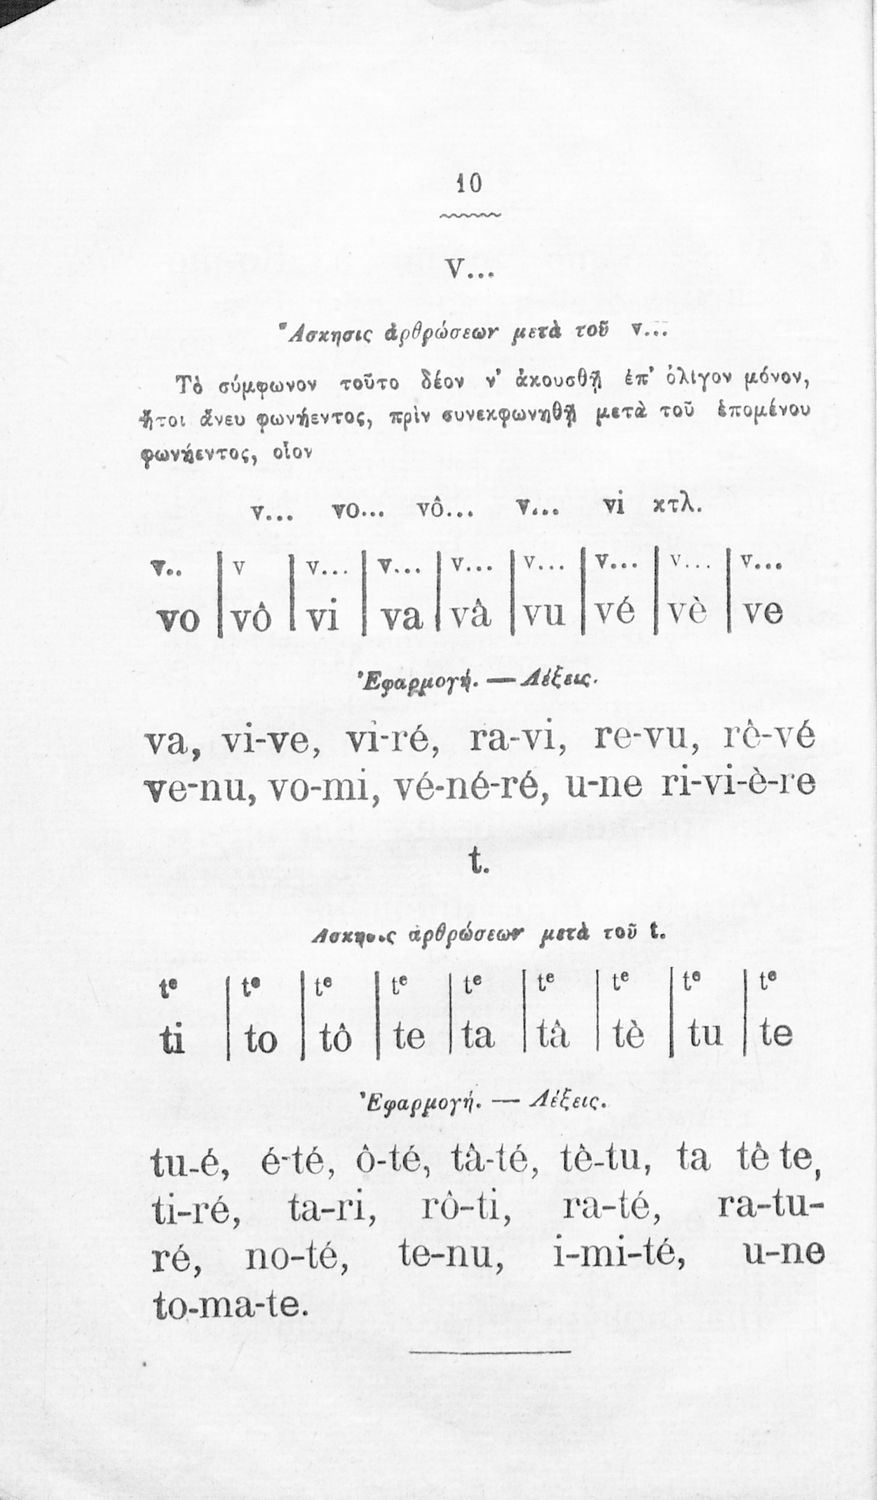 10
v...
Ἄσκησις ἀρθρώσεων μετὰ τοῦ v...
Τὸ σύμφωνον τοῦτο δέον ν’ ἀκουσθῇ ἐπ’ ὀλίγον μόνον,
ἤτοι ἄνευ φωνήεντος, πρὶν συνεκφωνηθῇ μετὰ τοῦ ἑπομένου
φωνήεντος, οἷον
v... vo... vô... v... vi κτλ.
v.. | v | v... | v... | v... | v... | v... | v... | v...
vo | vô | vi | va | vâ | vu | vé | vè | ve
Ἐφαρμογή. — Λέξεις.
va, vi-ve, vi-ré, ra-vi, re-vu, rê-vé
ve-nu, vo-mi, vé-né-ré, u-ne ri-vi-è-re
t.
Ασκησις ἀρθρώσεων μετὰ τοῦ t.
te | te | te | te | te | te | te | te | te
ti | to | tô | te | ta | tâ | tè | tu | te
Ἐφαρμογή. — Λέξεις.
tu-é, é-té, ô-té, tâ-té, tê-tu, ta tê te,
ti-ré, ta-ri, rô-ti, ra-té, ra-tu-
ré, no-té, te-nu, i-mi-té, u-ne
to-ma-te.